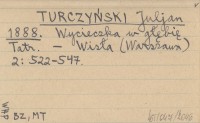 TURCZYŃSKI Juljan
1888. Wycieczka w głębie
Tatr. – Wisła (Warszawa)
2: 522-547.
BZ, MT